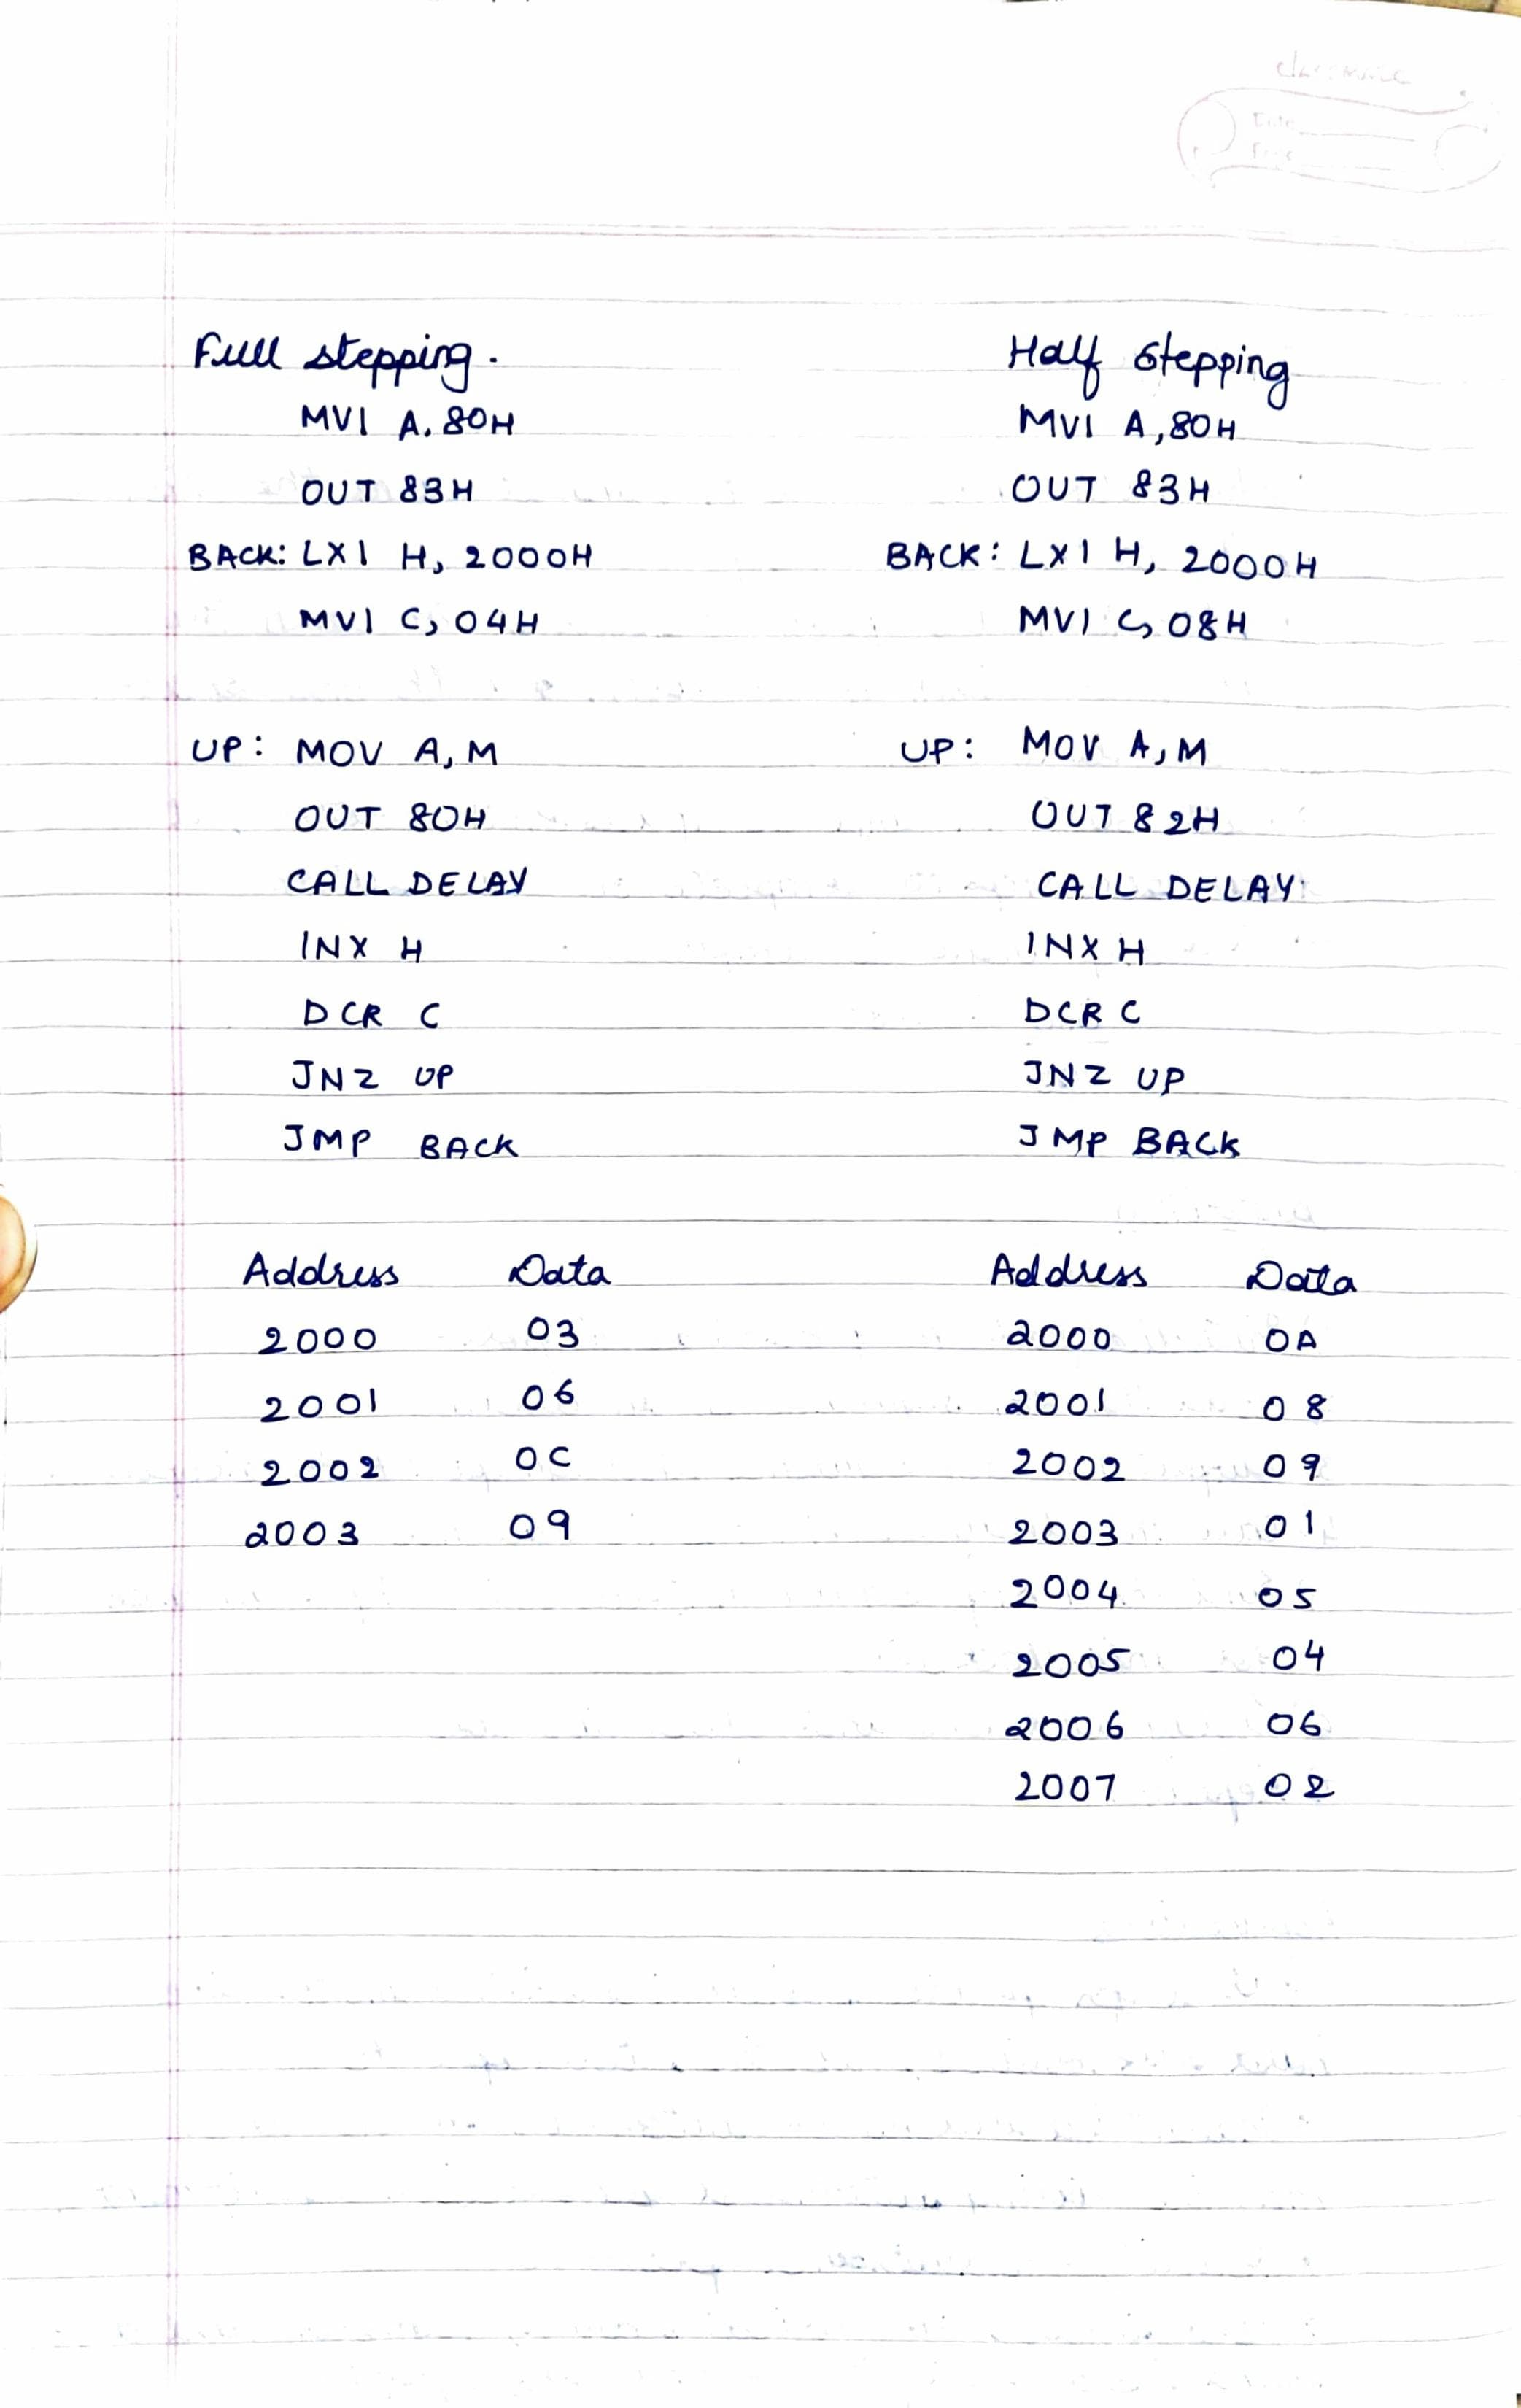 classmate
Date
Page
Full stepping.
MVI A. 80H
OUT 83H
BACK: LXI H, 2000H
MVI C, 04H
UP: MOV A, M
OUT 80H
CALL DELAY
INX H
DCR C
JNZ UP
JMP BACK
Address Data
2000 03
2001 06
2002 0C
2003 09
Half stepping
MVI A, 80H
OUT 83H
BACK: LXI H, 2000H
MVI C, 08H
UP: MOV A, M
OUT 82H
CALL DELAY
INX H
DCR C
JNZ UP
JMP BACK
Address Data
2000 0A
2001 08
2002 09
2003 01
2004 05
2005 04
2006 06
2007 02